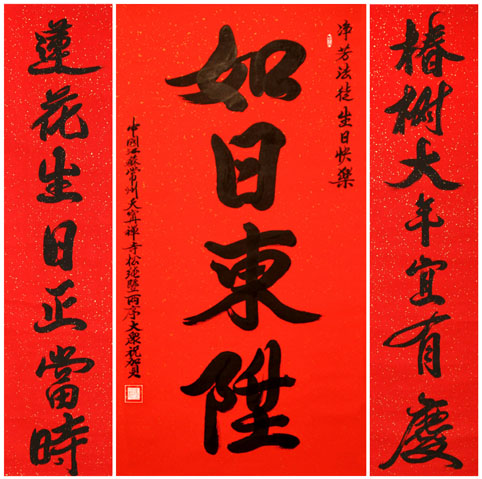 椿樹大年宜有慶
净芳法徒生日快樂
如日東陞
中國江蘇常州天寧禪寺松純暨兩序大衆祝賀
蓮花生日正當時